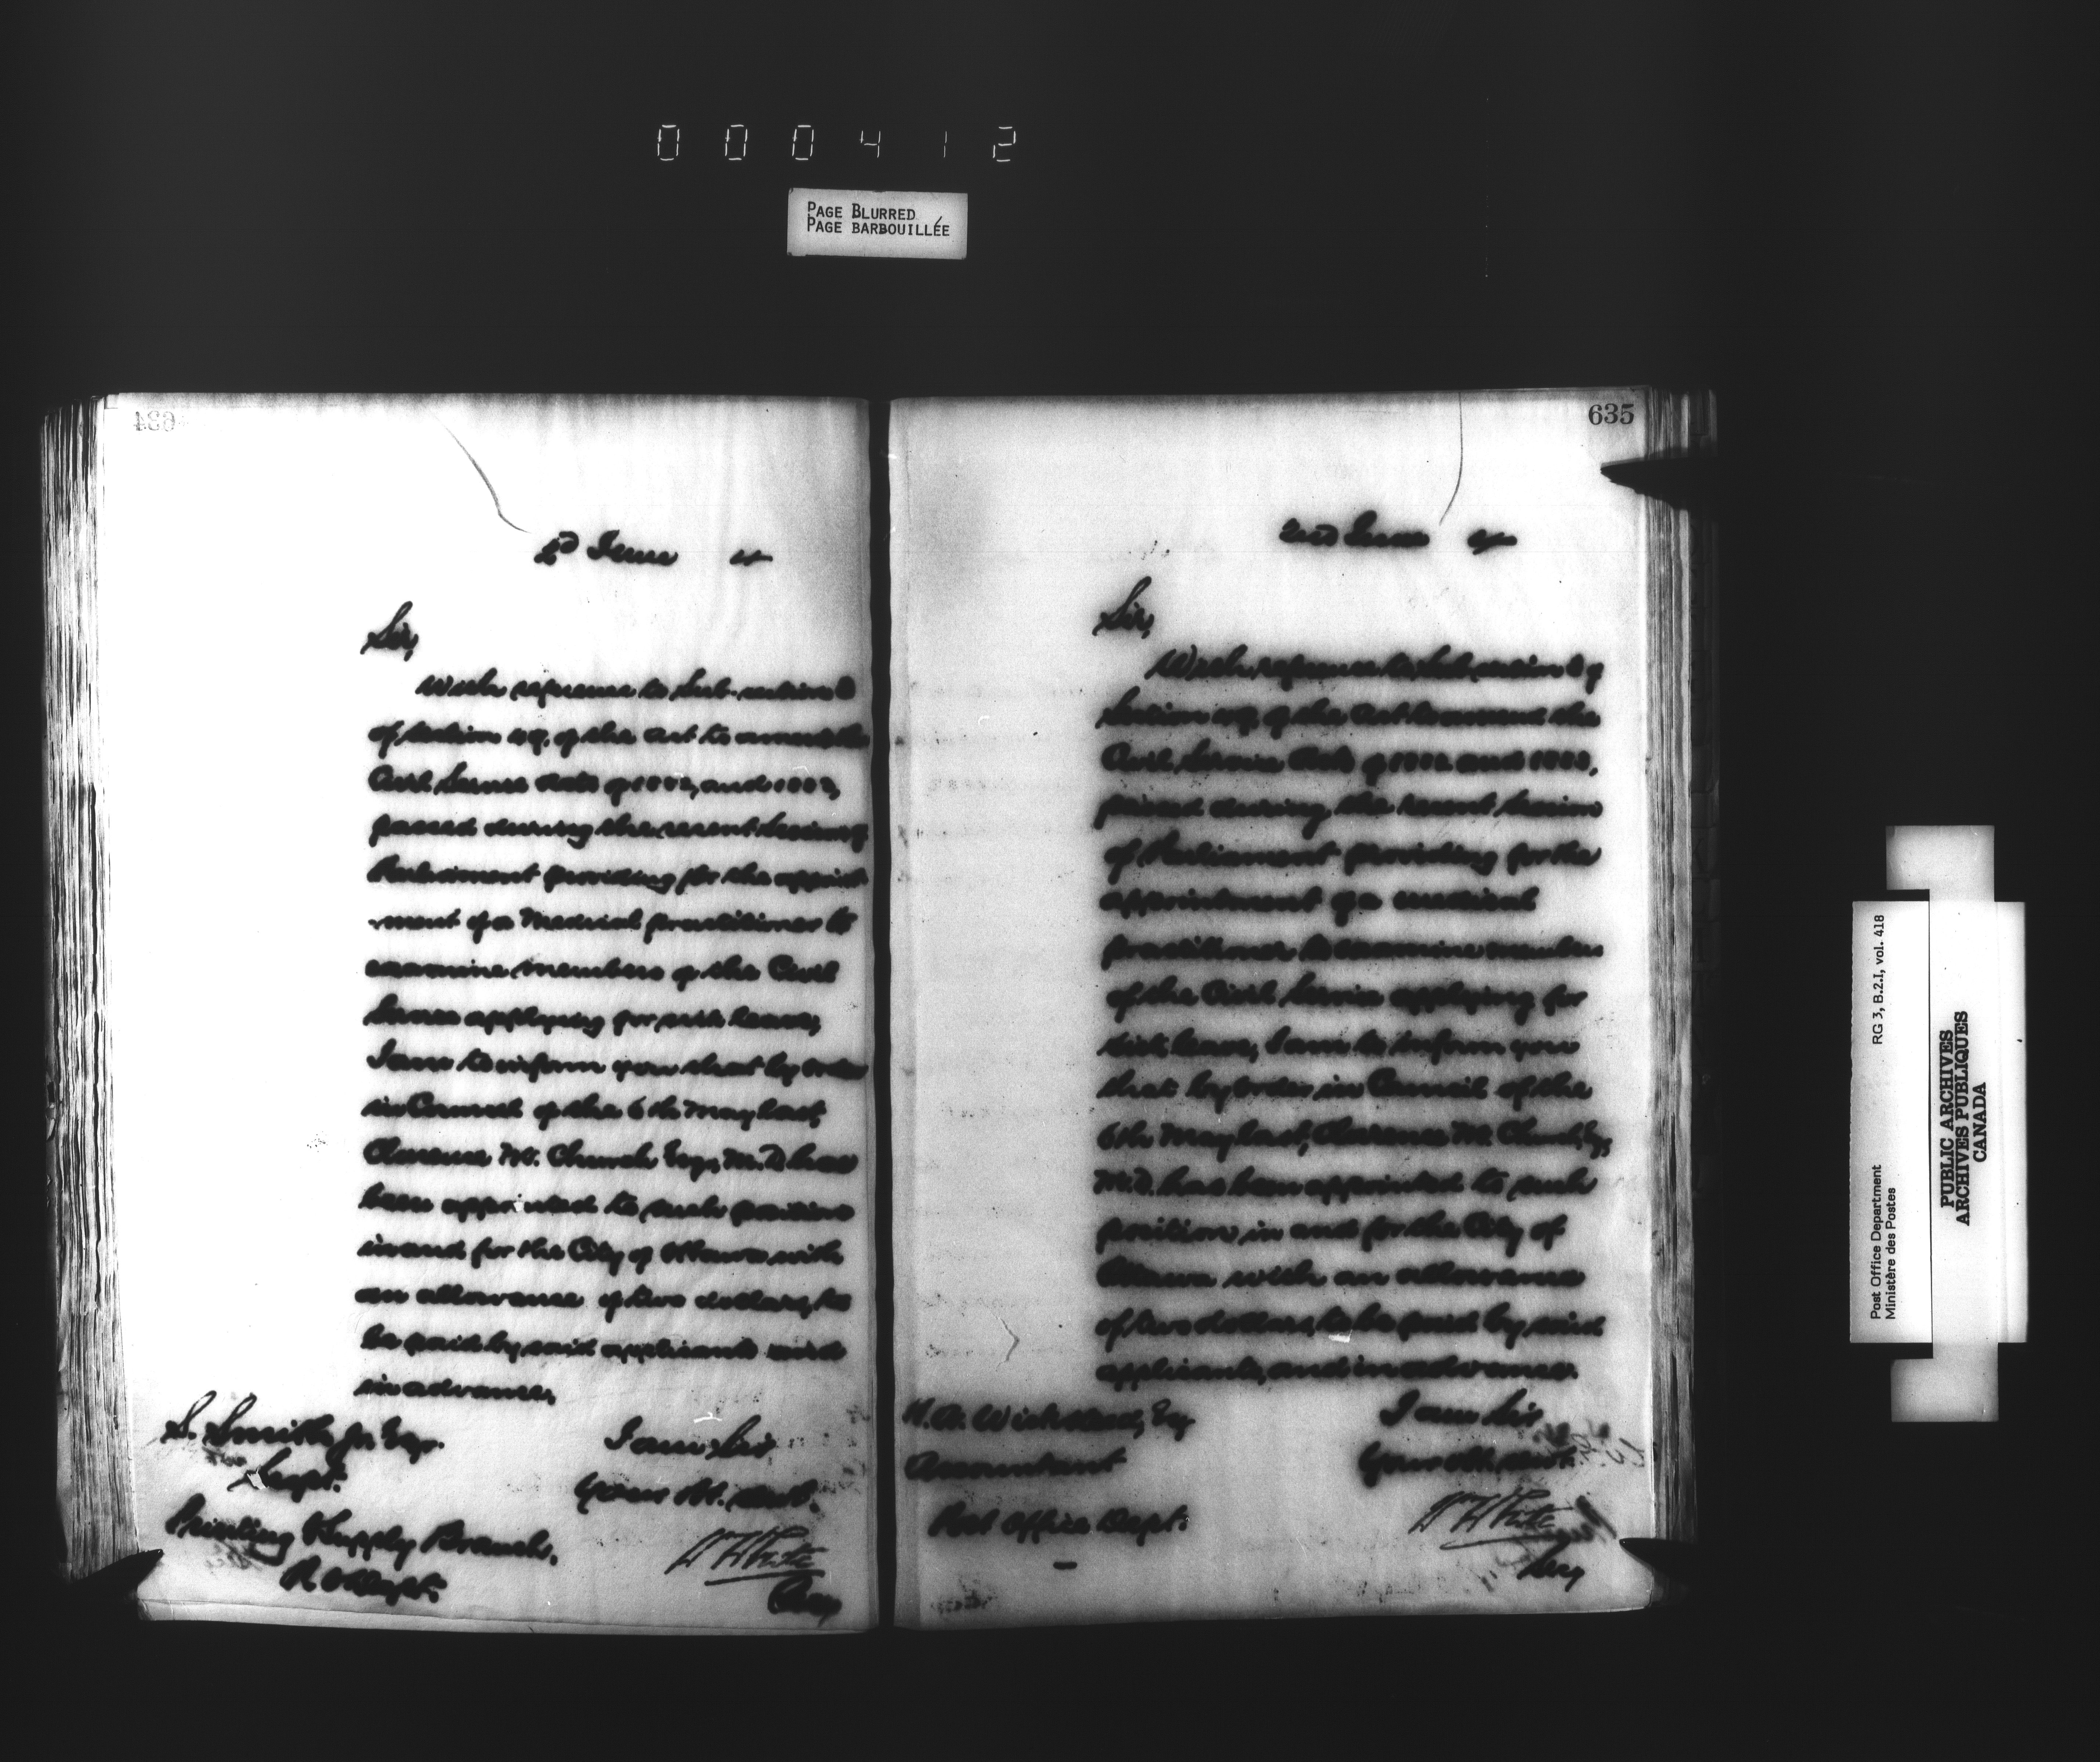 000412
PAGE BLURRED
PAGE BARBOUILLÉE
634
2d June
Sir,
With reference to Sub-section
of Section of the Act to amend the
Civil Service Acts of 1882, and 1883,
passed during the recent Session of
Parliament providing for the appoint
-ment of a Medical practitioner to
examine members of the Civil
Service applying for sick leave,
I am to inform you that by order
in Council of the 6th May last,
Clarence M. Church Esq, M.D. has
been appointed to such position
in and for the City of Ottawa with
an allowance of two dollars, to
be paid by said applicants and
in advance.
I am Sir
Your Ob. Servt.
W White
Secy
S. Smith Jr. Esqr.
Supt.
Printing & Supply Branch.
P. O Dept.
635
2nd June
Sir,
With reference to Sub section of
Section of the Act to amend the
Civil Service Acts of 1882 and 1883,
passed during the recent Session
of Parliament providing for the
appointment of a medical
practitioner to examine members
of the Civil Service applying for
sick leave, I am to inform you
that by order in Council of the
6th May last, Clarence M. Church, Esq,
M.D. has been appointed to such
position in and for the City of
Ottawa with an allowance
of two dollars, to be paid by said
applicants, and in advance.
I am Sir
Your Ob. Servt.
W White
Secy
H. A. Wicksteed, Esq
Accountant
Post Office Dept.
Post Office Department RG 3, B.2.I, vol. 418
Ministère des Postes
PUBLIC ARCHIVES
ARCHIVES PUBLIQUES
CANADA